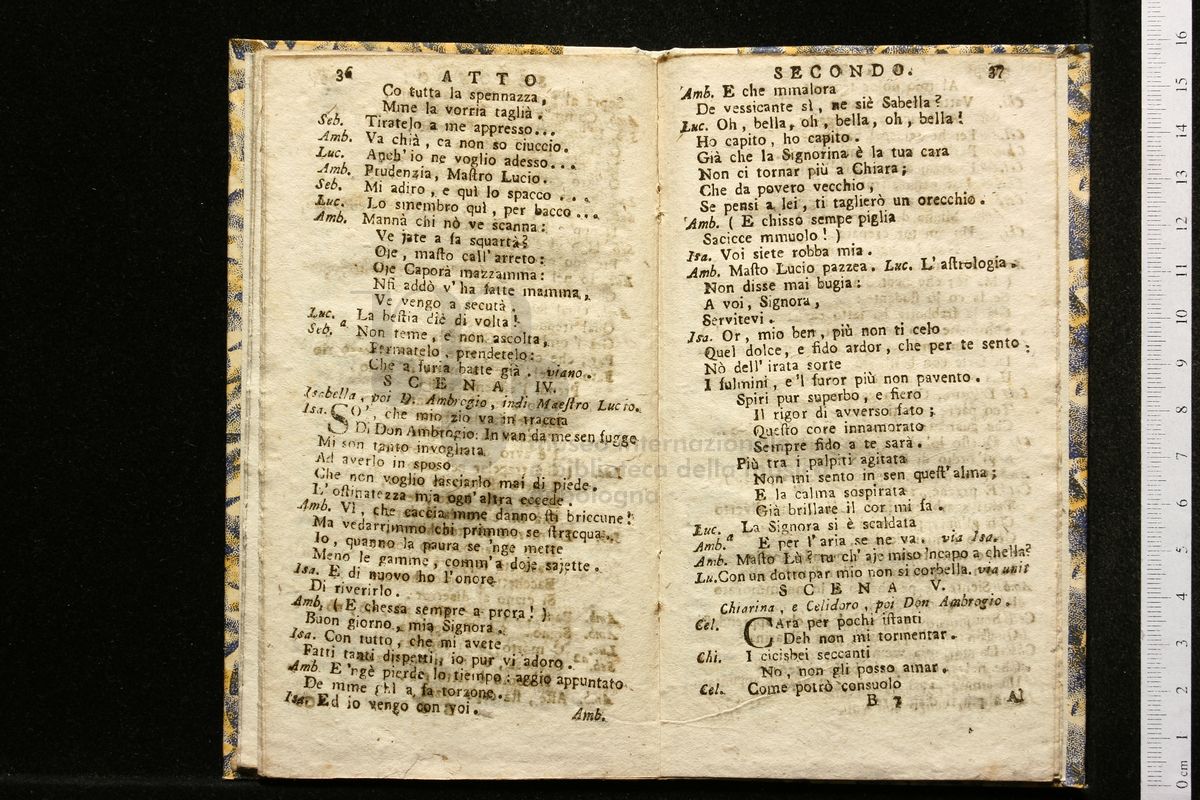 36 ATTO
Co tutta la spennazza,
Mme la vorria taglià.
Seb. Tiratelo a me appresso...
Amb. Va chià, ca non so ciuccio.
Luc. Anch' io ne voglio adesso...
Amb. Prudenzia, Mastro Lucio.
Seb. Mi adiro, e quì lo spacco...
Luc. Lo smembro quì, per bacco...
Amb. Mannà chi nò ve scanna:
Ve jate a fa squartà?
Oje, masto call' arreto:
Oje Caporà mazzamma:
Nfi addò v' ha fatte mamma,
Ve vengo a secutà.
Luc. a La bestia diè di volta!
Seb. Non teme, e non ascolta,
Fermatelo, prendetelo:
Che a furia batte già. viano.
SCENA IV.
Isabella, poi D. Ambrogio, indi Maestro Lucio.
Isa. SO', che mio zio va in traccia
Di Don Ambrogio. In van da me sen fugge
Mi son tanto invogliata
Ad averlo in sposo
Che non voglio lasciarlo mai di piede.
L' ostinatezza mia ogn' altra eccede.
Amb. Vì, che caccia mme danno sti briccune!
Ma vedarrimmo chi primmo se stracqua.
Io, quanno la paura se 'nge mette
Meno le gamme, comm' a doje sajette.
Isa. E di nuovo ho l'onore
Di riverirlo.
Amb. (E chessa sempre a prora!)
Buon giorno, mia Signora.
Isa. Con tutto, che mi avete
Fatti tanti dispetti, io pur vi adoro.
Amb. E 'ngè pierde lo tiempo: aggio appuntato
De mme ghì a fa torzone.
Isa. Ed io vengo con voi.
Amb.
SECONDO. 37
Amb. E che mmalora
De vessicante sì, ne siè Sabella?
Luc. Oh, bella, oh, bella, oh, bella!
Ho capito, ho capito.
Già che la Signorina è la tua cara
Non ci tornar più a Chiara;
Che da povero vecchio,
Se pensi a lei, ti taglierò un orecchio.
Amb. (E chisso sempe piglia
Sacicce mmuolo!)
Isa. Voi siete robba mia.
Amb. Masto Lucio pazzea. Luc. L' astrologia
Non disse mai bugia:
A voi, Signora,
Servitevi.
Isa. Or, mio ben, più non ti celo
Quel dolce, e fido ardor, che per te sento:
Nò dell' irata sorte
I fulmini, e 'l furor più non pavento.
Spiri pur superbo, e fiero
Il rigor di avverso fato;
Questo core innamorato
Sempre fido a te sarà.
Più tra i palpiti agitata
Non mi sento in sen quest' alma;
E la calma sospirata
Già brillare il cor mi fa.
Luc. a La Signora si è scaldata
Amb. E per l'aria se ne va. via Isa.
Amb. Masto Lù? tu ch' aje miso 'ncapo a chella?
Lu. Con un dotto par mio non si corbella. via unit
SCENA V.
Chiarina, e Celidoro, poi Don Ambrogio.
Cel. CAra per pochi istanti
Deh non mi tormentar.
Chi. I cicisbei seccanti
No, non gli posso amar.
Cel. Come potrò consuolo
B 7 Al